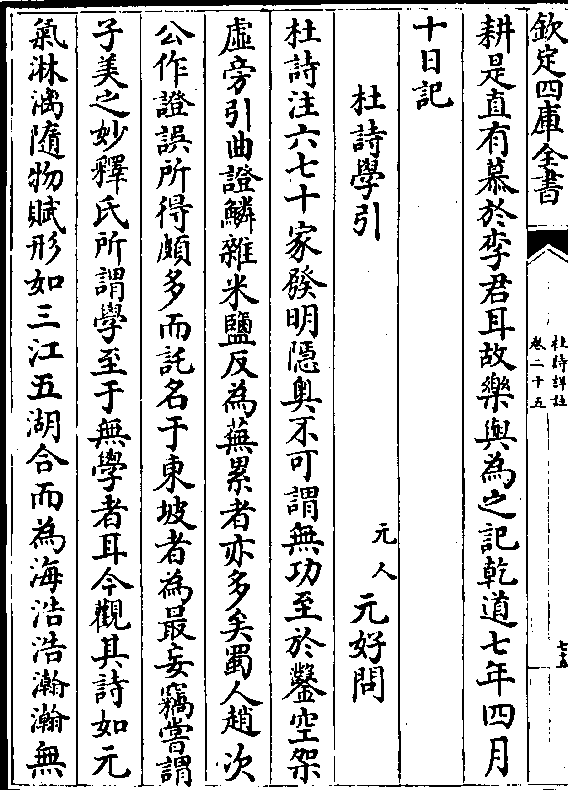 欽定四庫全書
杜詩詳註
卷二十五
耕是直有慕於李君耳故樂與為之記乾道七年四月
十日記
杜詩學引
元人 元好問
杜詩注六七十家發明隱奥不可謂無功至於鑿空架
虛旁引曲證鱗雜米鹽反為蕪累者亦多矣蜀人趙次
公作證誤所得頗多而託名于東坡者為最妄竊嘗謂
子美之妙釋氏所謂學至于無學者耳今觀其詩如元
氣淋漓隨物賦形如三江五湖合而為海浩浩瀚瀚無